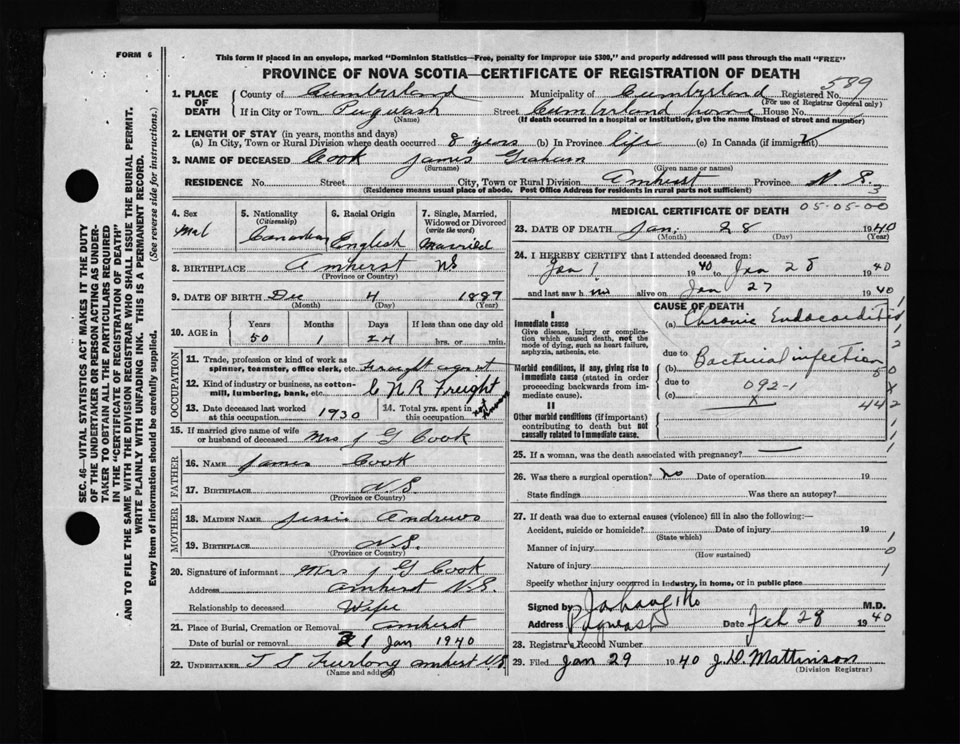 FORM 6
This form if placed in an envelope, marked "Dominion Statistics—Free, penalty for improper use $300," and properly addressed will pass through the mail "FREE"
PROVINCE OF NOVA SCOTIA—CERTIFICATE OF REGISTRATION OF DEATH
589
SEC. 46—VITAL STATISTICS ACT MAKES IT THE DUTY
OF THE UNDERTAKER OR PERSON ACTING AS UNDER-
TAKER TO OBTAIN ALL THE PARTICULARS REQUIRED
IN THE "CERTIFICATE OF REGISTRATION OF DEATH"
AND TO FILE THE SAME WITH THE DIVISION REGISTRAR WHO SHALL ISSUE THE BURIAL PERMIT.
WRITE PLAINLY WITH UNFADING INK. THIS IS A PERMANENT RECORD.
Every item of information should be carefully supplied. (See reverse side for instructions.)
1. PLACE OF DEATH County of Cumberland Municipality of Cumberland Registered No.
(For use of Registrar General only)
If in City or Town Pugwash Street Cumberland home House No.
(Name) (If death occurred in a hospital or institution, give the name instead of street and number)
2. LENGTH OF STAY (in years, months and days)
(a) In City, Town or Rural Division where death occurred 8 years (b) In Province life (c) In Canada (if immigrant)
3. NAME OF DECEASED Cook James Graham
(Surname) (Given name or names)
RESIDENCE No. Street City, Town or Rural Division Amherst Province N.S.
3
(Residence means usual place of abode. Post Office Address for residents in rural parts not sufficient)
4. Sex Mal
5. Nationality (Citizenship) Canadian
6. Racial Origin English
7. Single, Married, Widowed or Divorced (write the word) Married
8. BIRTHPLACE Amherst NS
(Province or Country)
9. DATE OF BIRTH Dec 4 1889
(Month) (Day) (Year)
10. AGE in Years Months Days If less than one day old
50 1 24 hrs. or min.
OCCUPATION
11. Trade, profession or kind of work as spinner, teamster, office clerk, etc. Freight agent
12. Kind of industry or business, as cotton-mill, lumbering, bank, etc. C N R Freight
13. Date deceased last worked at this occupation 1930
14. Total yrs. spent in this occupation
15. If married give name of wife or husband of deceased Mrs J G Cook
FATHER
16. NAME James Cook
17. BIRTHPLACE N.S
(Province or Country)
MOTHER
18. MAIDEN NAME Jessie Andrews
19. BIRTHPLACE N.S.
(Province or Country)
20. Signature of informant Mrs J G Cook
Address Amherst N.S.
Relationship to deceased Wife
21. Place of Burial, Cremation or Removal Amherst
Date of burial or removal 31 Jan 1940
22. UNDERTAKER T S Furlong Amherst N.S
(Name and address)
MEDICAL CERTIFICATE OF DEATH 05-05-00
23. DATE OF DEATH Jan. 28 1940
(Month) (Day) (Year)
24. I HEREBY CERTIFY that I attended deceased from:
Jan 1 1940 to Jan 28 1940
and last saw h im alive on Jan 27 1940
CAUSE OF DEATH
I
Immediate cause
Give disease, injury or complication which caused death, not the mode of dying, such as heart failure, asphyxia, asthenia, etc.
(a) Chronic Endocarditis
due to
Morbid conditions, if any, giving rise to immediate cause (stated in order proceeding backwards from immediate cause).
(b) Bacterial infection
due to 092-1
(c) X
442
II
Other morbid conditions (if important) contributing to death but not causally related to immediate cause.
25. If a woman, was the death associated with pregnancy? —
26. Was there a surgical operation? No Date of operation 19
State findings Was there an autopsy?
27. If death was due to external causes (violence) fill in also the following:—
Accident, suicide or homicide? Date of injury 19
(State which)
Manner of injury
(How sustained)
Nature of injury
Specify whether injury occurred in industry, in home, or in public place
Signed by M.D.
Address Pugwash Date Feb 28 1940
28. Registrar's Record Number
29. Filed Jan 29 1940 J.D. Mattinson
(Division Registrar)